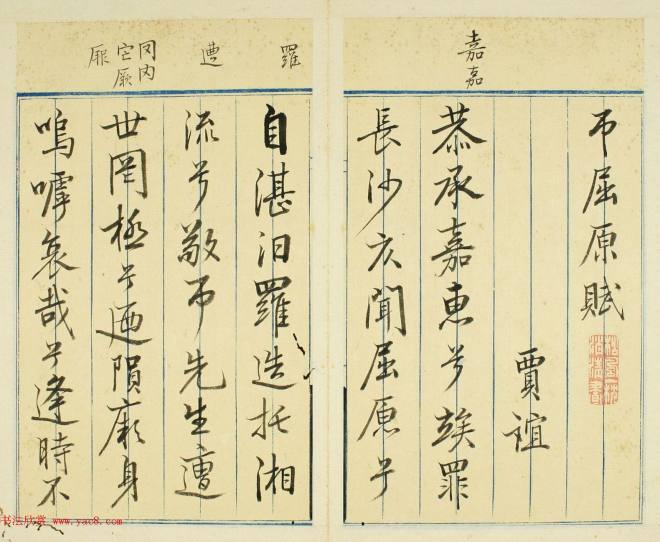 弔屈原賦
賈誼
恭承嘉惠兮竢罪
長沙仄聞屈原兮
自湛汨羅造托湘
流兮敬弔先生遭
世罔極兮迺隕厥身
嗚嘑哀哉兮逢時不
嘉嘉
羅
遭
罔内
它厥
厥
书法欣赏 www.yac8.com